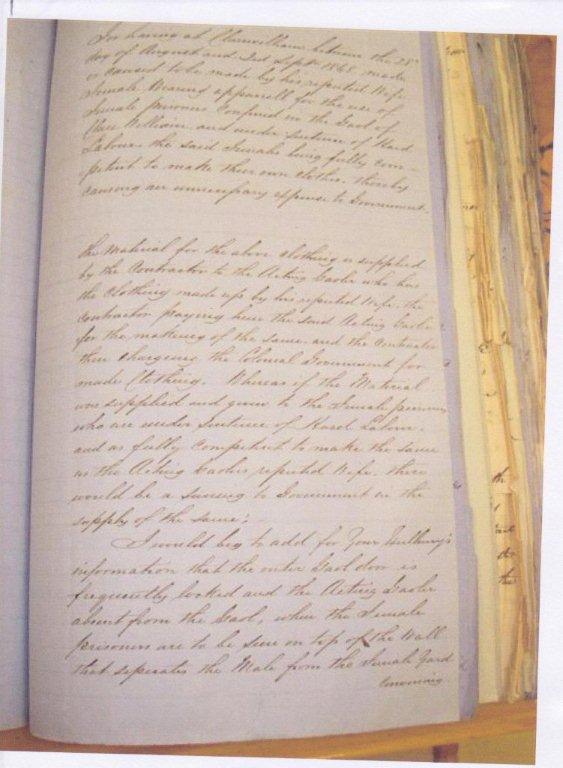 For having at Clanwilliam between the 28th
day of August and 2nd Septr 1868, made
or caused to be made by his reputed Wife
Female Wearing apparell for the use of
Female prisoners confined in the Gaol of
Clan William and under sentence of Hard
Labour the said Female being fully com-
petent to make their own clothes, thereby
causing an unnecessary expense to Government.
The Material for the above clothing is supplied
by the Contractor to the Acting Gaoler who has
the clothing made up by his reputed Wife, the
contractor paying him the said Acting Gaoler
for the making of the same, and the Contractor
then charging the Colonial Government for
made Clothing. Whereas if the Material
was supplied and given to the Female prisoners
who are under sentence of Hard Labour
and as fully competent to make the same
as the Acting Gaolers reputed Wife, there
would be a saving to Government in the
supply of the same;
I would beg to add for Your
information that the outer Gaol door is
frequently locked and the Acting Gaoler
absent from the Gaol, when the Female
prisoners are to be seen on top of the Wall
that seperates the Male from the Female Yard